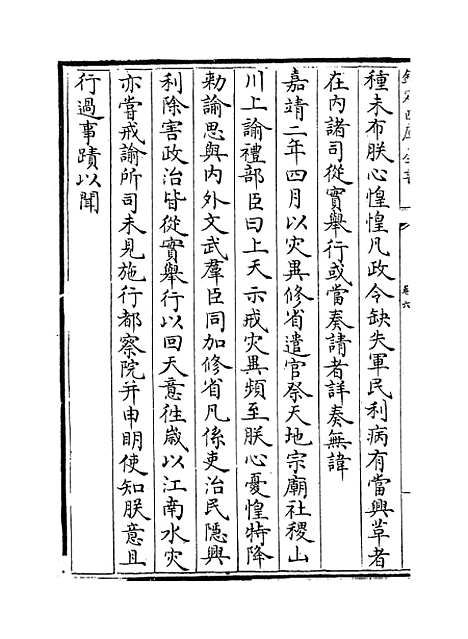 欽定四庫全書
卷六
種未布朕心惶惶凡政令缺失軍民利病有當興革者
在內諸司從實舉行或當奏請者詳奏無諱
嘉靖二年四月以灾異修省遣官祭天地宗廟社稷山
川上諭禮部臣曰上天示戒灾異頻至朕心憂惶特降
勅諭思與內外文武羣臣同加修省凡係吏治民隱興
利除害政治皆從實舉行以回天意往歲以江南水灾
亦嘗戒諭所司未見施行都察院并申明使知朕意且
行過事蹟以聞